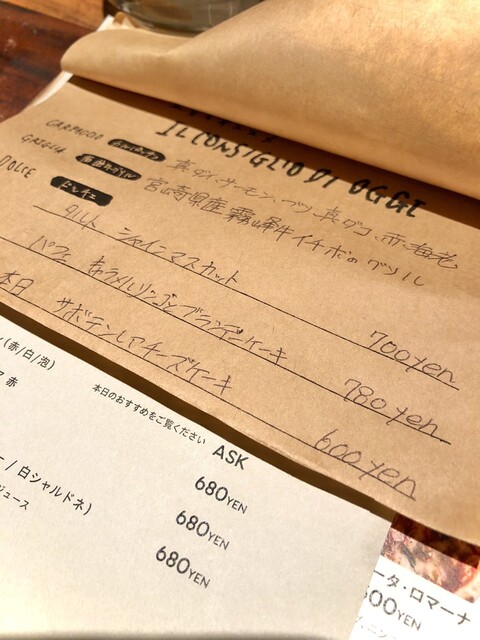 IL CONSIGLIO DI OGGI
CARPACCIO カルパッチョ 真ダイ、サーモン、ブリ、真ダコ、赤海老
GRIGLIA 宮崎県産霧島牛イチボのグリル
DOLCE ドルチェ
タルト シャインマスカット 700yen
パフェ キャラメルリンゴンブランデーケーキ 780yen
本日 サボテンレアチーズケーキ 600yen
(赤/白/泡)
本日のおすすめをご覧ください ASK
ア 赤 680YEN
680YEN
ー / 白シャルドネ) 680YEN
ジュース
ータ・ロマーナ
600YEN